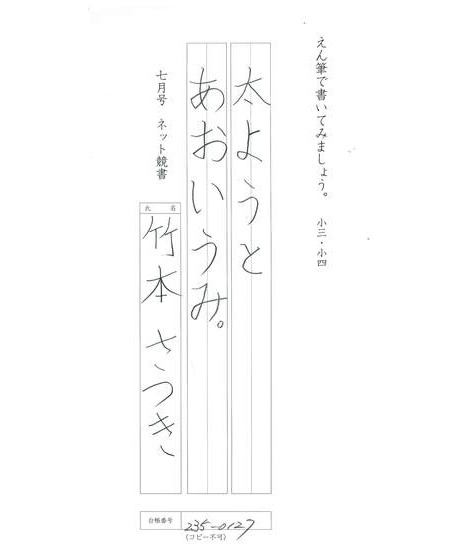 えん筆で書いてみましょう。　小三・小四
太ようと
あおいうみ。
七月号　ネット競書
氏　名
竹本さつき
台帳番号　235-0127
(コピー不可)